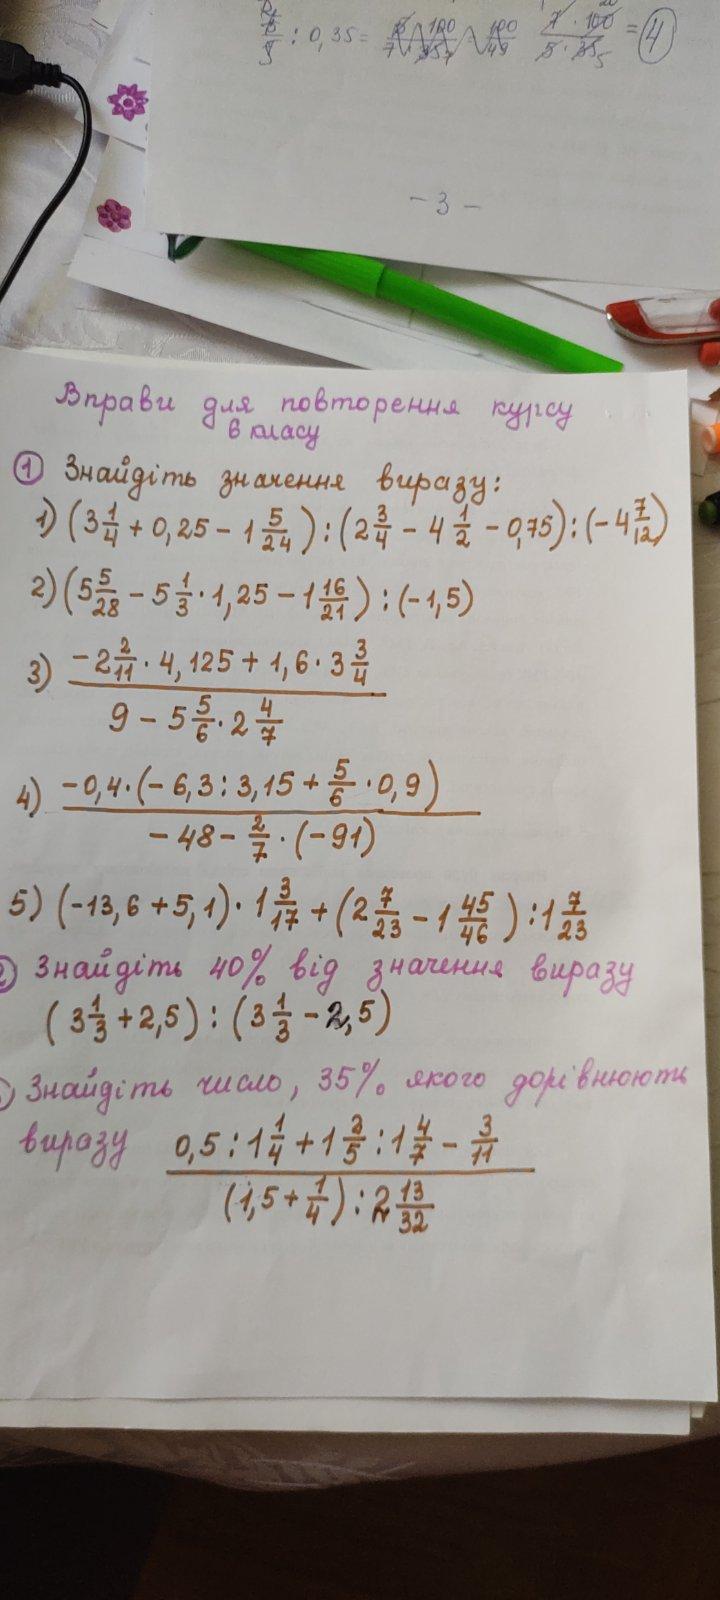 : 0,35 = = 4
- 3 -
Вправи для повторення курсу
6 класу
① Знайдіть значення виразу:
1) (3 1/4 + 0,25 - 1 5/24) : (2 3/4 - 4 1/2 - 0,75) : (-4 7/12)
2) (5 5/28 - 5 1/3 · 1,25 - 1 16/21) : (-1,5)
3) -2 2/11 · 4,125 + 1,6 · 3 3/4
9 - 5 5/6 · 2 4/7
4) -0,4 · (-6,3 : 3,15 + 5/6 · 0,9)
-48 - 2/7 · (-91)
5) (-13,6 + 5,1) · 1 3/17 + (2 7/23 - 1 45/46) : 1 7/23
Знайдіть 40% від значення виразу
(3 1/3 + 2,5) : (3 1/3 - 2,5)
Знайдіть число, 35% якого дорівнюють
виразу 0,5 : 1 1/4 + 1 2/5 : 1 4/7 - 3/11
(1,5 + 1/4) : 2 13/32